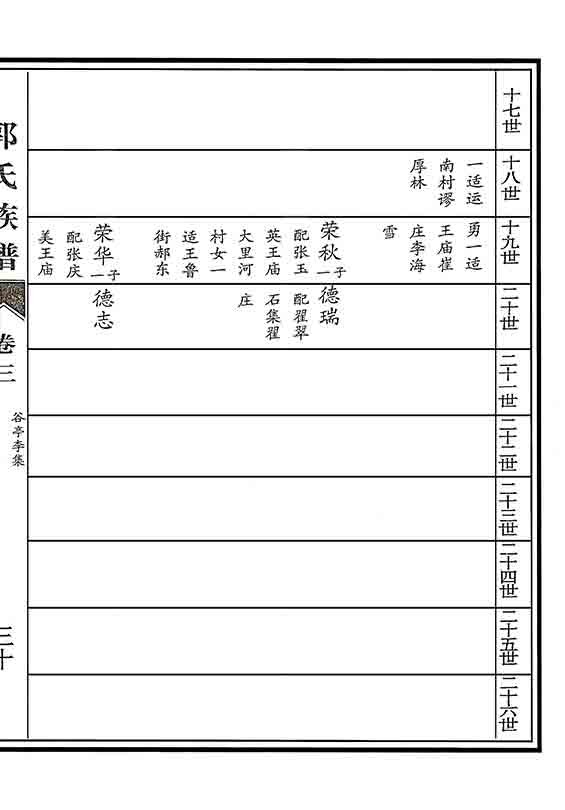 十七世
十八世
一适运
南村谬
厚林
十九世
勇一适
王庙崔
庄李海
雪
荣秋一子
配张玉
英王庙
大里河
村女一
适王鲁
街郝东
荣华一子
配张庆
美王庙
二十世
德瑞
配翟翠
石集翟
庄
德志
二十一世
二十二世
二十三世
二十四世
二十五世
二十六世
郭氏族谱
卷三
谷亭李集
三十